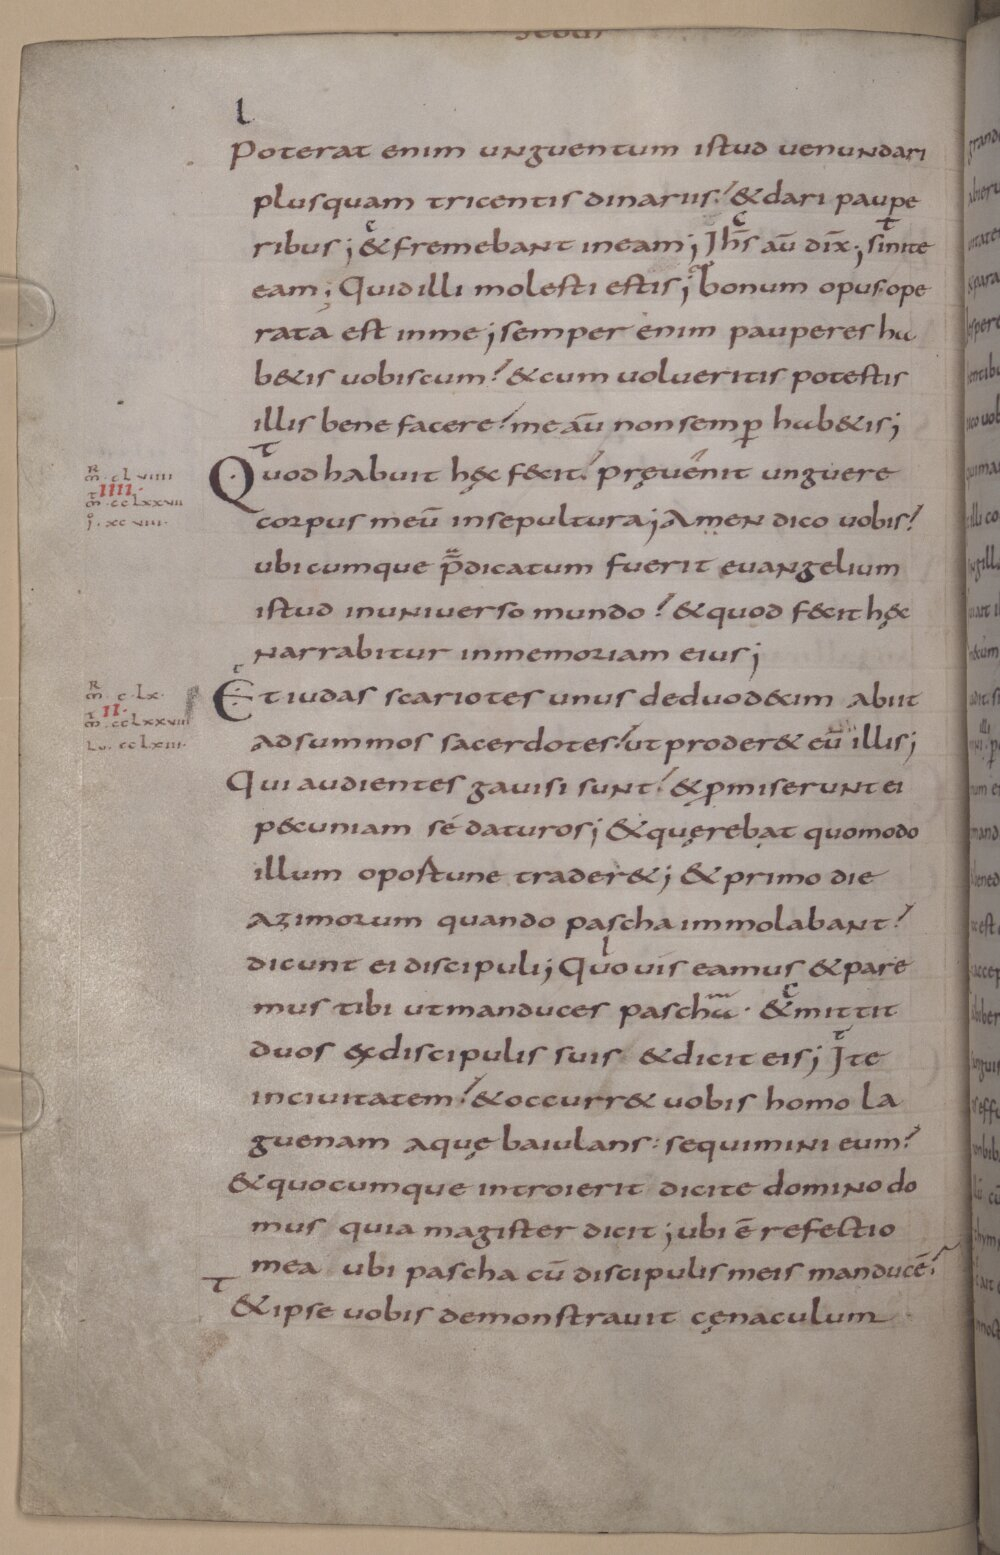 l
Poterat enim unguentum istud uenundari
plusquam tricentis dinariis? & dari paupe
ribus; & fremebant in eam; Jhs̄ aū dix̄; sinite
eam; Quid illi molesti estis; bonum opus ope
rata est in me; semper enim pauperes ha
b&is uobiscum? & cum uolueritis potestis
illis bene facere? me aū non semp̄ hab&is;
Quod habuit hęc fecit? pręuenit unguere
corpus meū in sepultura; Amen dico uobis?
ubicumque p̄dicatum fuerit euangelium
istud in uniuerso mundo? & quod fecit hęc
narrabitur in memoriam eius;
Et iudas scariotes unus de duodecim abiit
ad summos sacerdotes? ut proder& eū illis;
Qui audientes gauisi sunt? & ꝑmiserunt ei
pecuniam sé daturos; & quęrebat quomodo
illum oportune trader&; & primo die
azimorum quando pascha immolabant?
dicunt ei discipuli; Quo uis eamus & pare
mus tibi ut manduces pascha · & mittit
duos ex discipulis suis & dicit eis; Jte
in ciuitatem? & occurr& uobis homo la
guenam aquę baiulans: sequimini eum?
& quocumque introierit dicite domino do
mus quia magister dicit; ubi ē refectio
mea ubi pascha cū discipulis meis manducē?
& ipse uobis demonstrauit cęnaculum
R
m̄ · c lviiii
IIII
m̄ · cclxxvii
j · xcviii ·
R
m̄ · c · lx ·
II
m̄ · cclxxviii
Lu · cclxiii ·